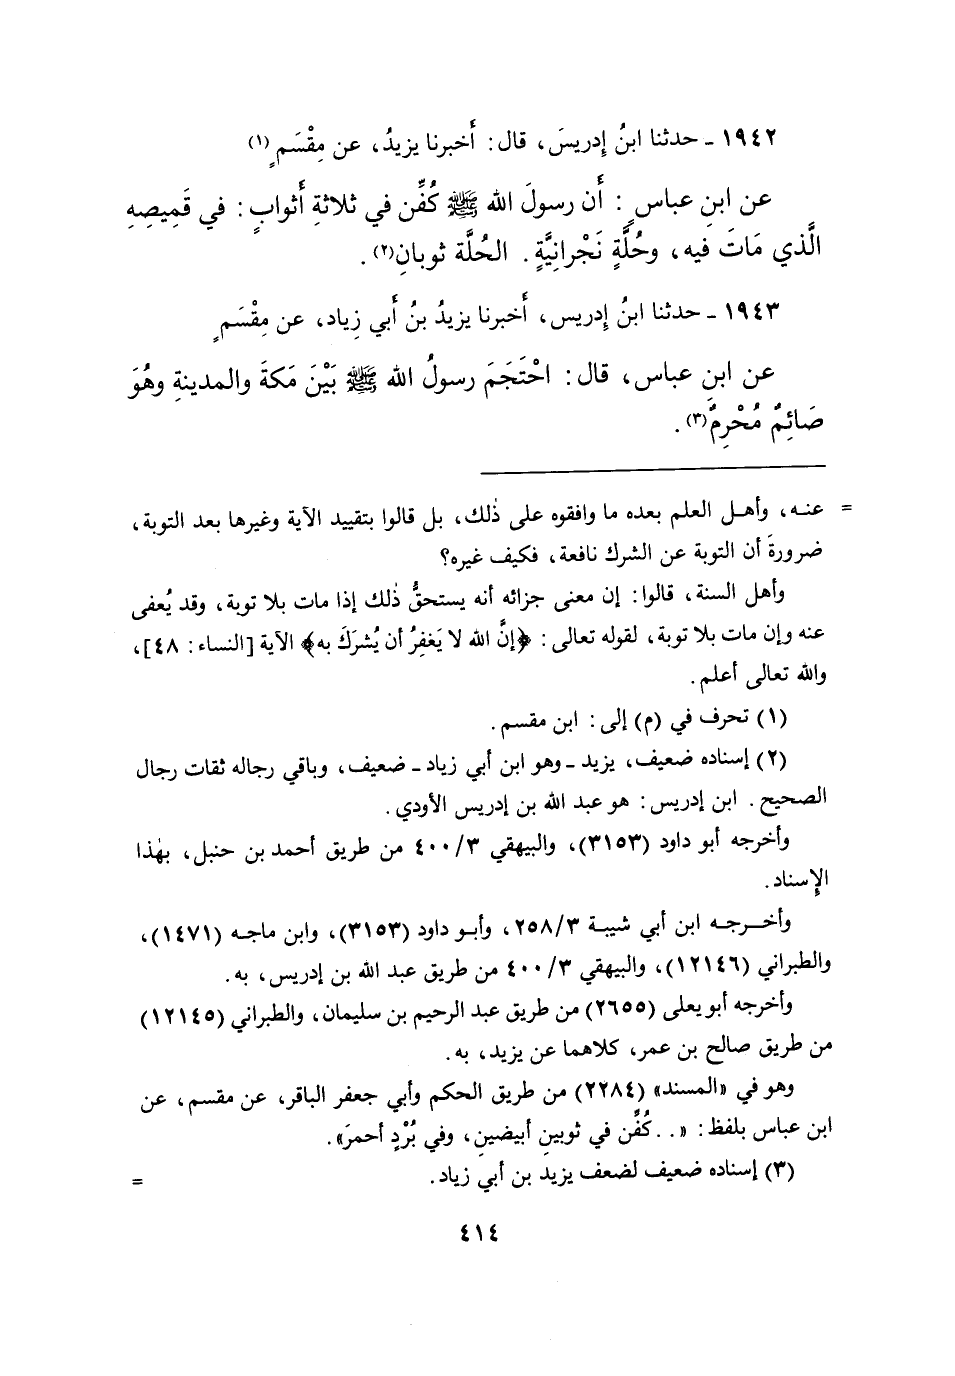 ١٩٤٢ ـ حدثنا ابنُ إدريسَ، قال: أَخبرنا يزيدُ، عن مِقْسَمٍ(١)
عن ابنِ عباسٍ: أَن رسولَ الله ﷺ كُفِّن في ثلاثةِ أَثوابٍ: في قَمِيصِهِ
الَّذي مَاتَ فيه، وحُلَّةٍ نَجْرانِيَّةٍ. الحُلَّة ثوبانِ(٢).
١٩٤٣ ـ حدثنا ابنُ إدريس، أَخبرنا يزيدُ بنُ أَبي زِياد، عن مِقْسَمٍ
عن ابنِ عباس، قال: احْتَجَمَ رسولُ الله ﷺ بَيْنَ مَكةَ والمدينةِ وهُوَ
صَائِمٌ مُحْرِمٌ(٣).
= عنـه، وأهـل العلم بعده ما وافقوه على ذٰلك، بل قالوا بتقييد الآية وغيرها بعد التوبة،
ضرورةَ أن التوبة عن الشرك نافعة، فكيف غيره؟
وأهل السنة، قالوا: إن معنى جزائه أنه يستحقُّ ذٰلك إذا مات بلا توبة، وقد يُعفى
عنه وإن مات بلا توبة، لقوله تعالى: ﴿إنَّ الله لا يَغفِرُ أن يُشرَكَ به﴾ الآية [النساء: ٤٨]،
والله تعالى أعلم.
(١) تحرف في (م) إلى: ابن مقسم.
(٢) إسناده ضعيف، يزيد ـ وهو ابن أبي زياد ـ ضعيف، وباقي رجاله ثقات رجال
الصحيح. ابن إدريس: هو عبد الله بن إدريس الأودي.
وأخرجه أبو داود (٣١٥٣)، والبيهقي ٤٠٠/٣ من طريق أحمد بن حنبل، بهٰذا
الإسناد.
وأخـرجـه ابن أبي شيبـة ٢٥٨/٣، وأبـو داود (٣١٥٣)، وابن ماجـه (١٤٧١)،
والطبراني (١٢١٤٦)، والبيهقي ٤٠٠/٣ من طريق عبد الله بن إدريس، به.
وأخرجه أبو يعلى (٢٦٥٥) من طريق عبد الرحيم بن سليمان، والطبراني (١٢١٤٥)
من طريق صالح بن عمر، كلاهما عن يزيد، به.
وهو في «المسند» (٢٢٨٤) من طريق الحكم وأبي جعفر الباقر، عن مقسم، عن
ابن عباس بلفظ: «.. كُفِّن في ثوبينِ أبيضينِ، وفي بُرْدٍ أحمرَ».
(٣) إسناده ضعيف لضعف يزيد بن أبي زياد.
=
٤١٤